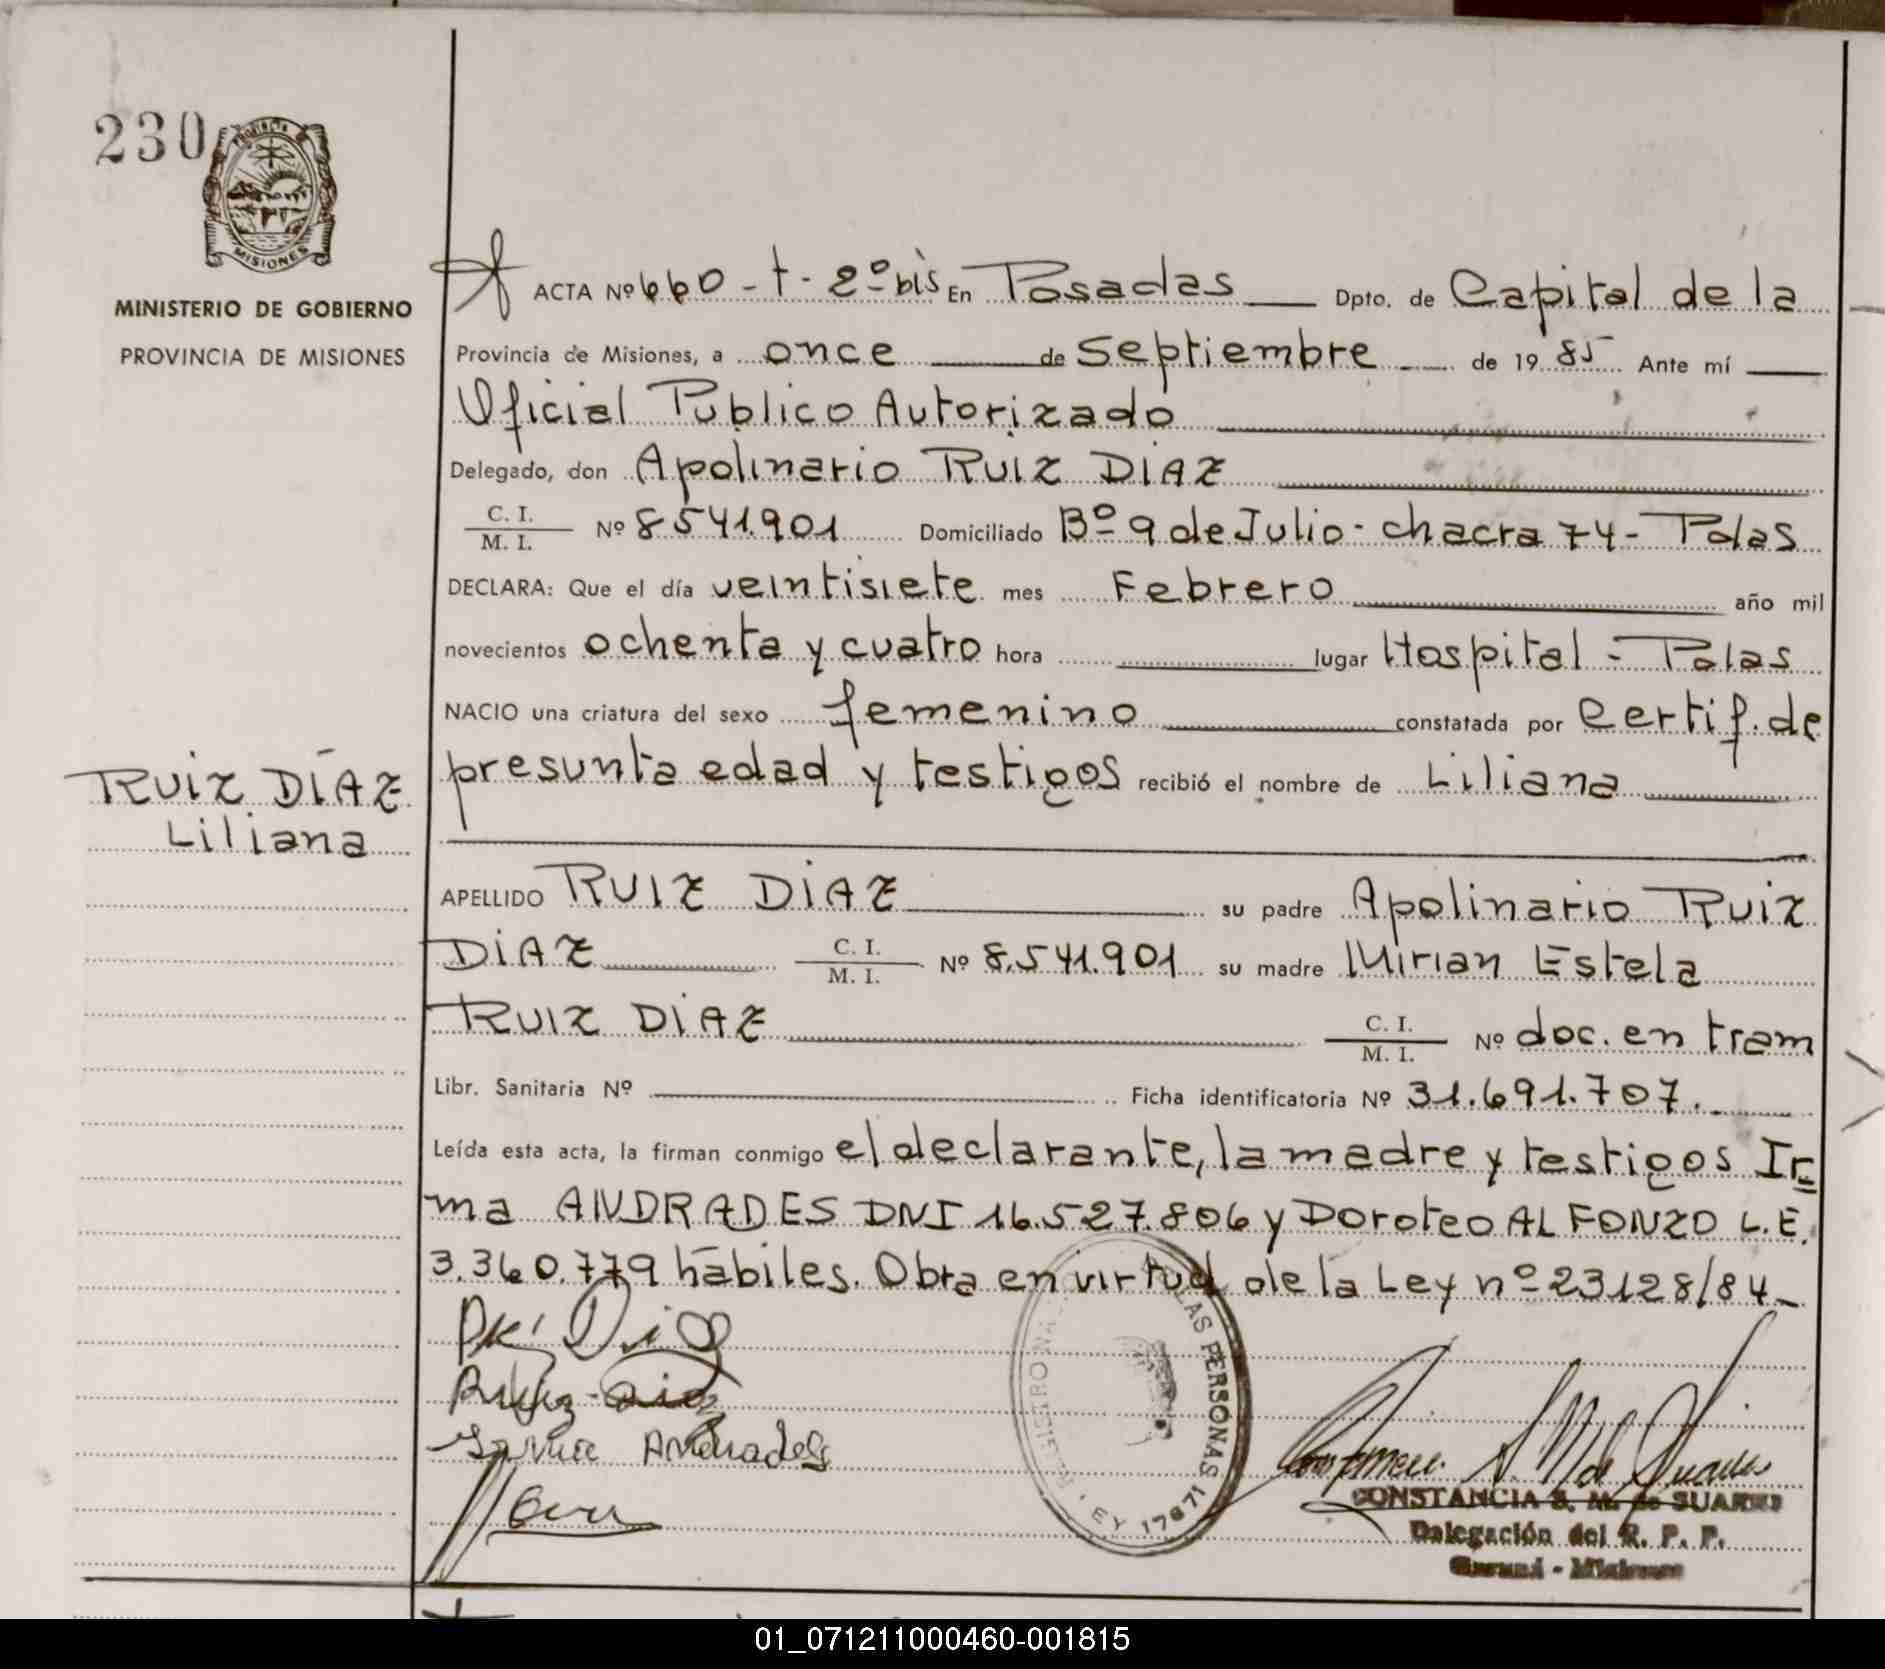 230
PROVINCIA
MISIONES
MINISTERIO DE GOBIERNO
PROVINCIA DE MISIONES
ACTA Nº 660 - t - 2º bis En Posadas Dpto. de Capital de la
Provincia de Misiones, a once de septiembre de 19 85 Ante mí
Oficial Publico Autorizado
Delegado, don Apolinario RUIZ DIAZ
C. I.
M. I. Nº 8541.901 Domiciliado Bº 9 de Julio - chacra 74 - Pdas
DECLARA: Que el día veintisiete mes Febrero año mil
novecientos ochenta y cuatro hora lugar Hospital - Pdas
NACIO una criatura del sexo femenino constatada por Certif. de
presunta edad y testigos recibió el nombre de Liliana
RUIZ DÍAZ
Liliana
APELLIDO RUIZ DIAZ su padre Apolinario Ruiz
DIAZ C. I. / M. I. Nº 8.541.901 su madre Mirian Estela
RUIZ DIAZ C. I. / M. I. Nº doc. en tram
Libr. Sanitaria Nº Ficha identificatoria Nº 31.691.707.
Leída esta acta, la firman conmigo el declarante, la madre y testigos Ir
ma ANDRADES DNI 16.527.806 y Doroteo ALFONZO L.E.
3.360.779 hábiles. Obra en virtud de la Ley nº 23128/84
Ruiz Diaz
Irma Andrades
LAS PERSONAS
LEY 17671
CONSTANCIA S. M. de SUAREZ
Delegación del R. P. P.
01_071211000460-001815